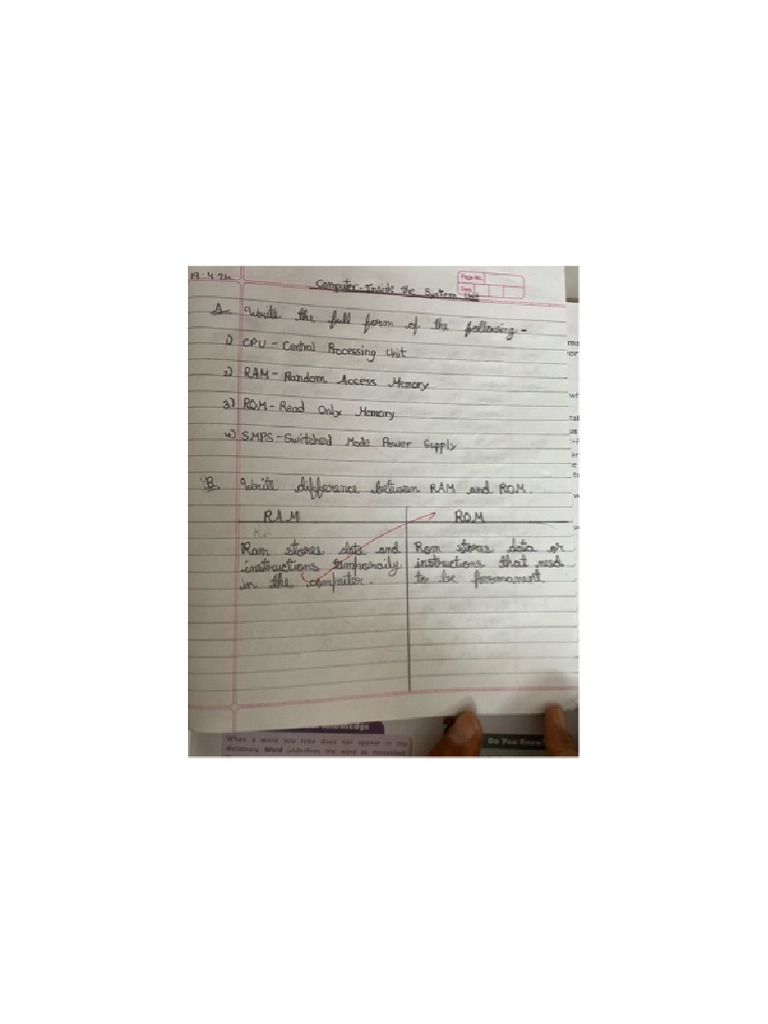 19.4.24
Page No.
Date
Computer - Inside the System Unit
A. Write the full form of the following -
1) CPU - Central Processing Unit
2) RAM - Random Access Memory
3) ROM - Read Only Memory
4) SMPS - Switched Mode Power Supply
B. Write difference between RAM and ROM.
RAM
Ram stores data and
instructions temporaily
in the computer.
ROM
Rom stores data or
instructions that need
to be permanent.
Knowledge
When a word you type does not appear in the
dictionary, Word underlines the word as misspelled
Do You Know